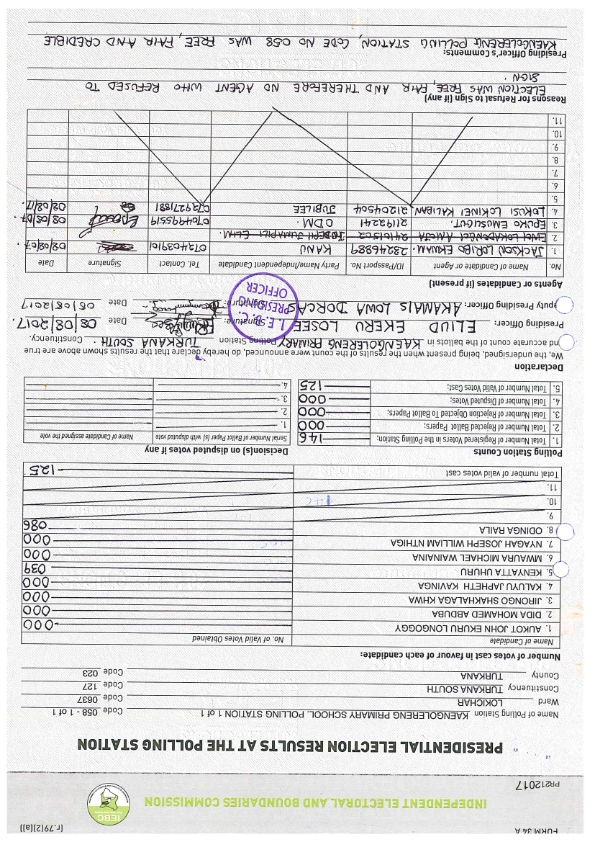 FORM 34 A
(r.79(2)(a))
INDEPENDENT ELECTORAL AND BOUNDARIES COMMISSION
IEBC
PR212017
PRESIDENTIAL ELECTION RESULTS AT THE POLLING STATION
Name of Polling Station KAENGOLERENG PRIMARY SCHOOL POLLING STATION 1 of 1 Code 058 - 1 of 1
Ward LOKICHAR Code 0637
Constituency TURKANA SOUTH Code 127
County TURKANA Code 023
Number of votes cast in favour of each candidate:
Name of Candidate No. of Valid Votes Obtained
1. AUKOT JOHN EKURU LONGOGGY 000
2. DIDA MOHAMED ABDUBA 000
3. JIRONGO SHAKHALAGA KHWA 000
4. KALUYU JAPHETH KAVINGA 000
5. KENYATTA UHURU 039
6. MWAURA MICHAEL WAINAINA 000
7. NYAGAH JOSEPH WILLIAM NTHIGA 000
8. ODINGA RAILA 086
9.
10.
11.
Total number of valid votes cast 125
Polling Station Counts
Decision(s) on disputed votes if any
1. Total Number of Registered Voters in the Polling Station; 146
2. Total Number of Rejected Ballot Papers; 000
3. Total Number of Rejection Objected To Ballot Papers; 000
4. Total Number of Disputed Votes; 000
5. Total Number of Valid Votes Cast; 125
Serial Number of Ballot Paper (s) with disputed vote Name of Candidate assigned the vote
1.
2.
3.
4.
Declaration
We, the undersigned, being present when the results of the count were announced, do hereby declare that the results shown above are true
and accurate count of the ballots in KAENGOLERENG PRIMARY Polling Station TURKANA SOUTH Constituency.
Presiding Officer: ELIUD EKERU LOSEE Signature: Date 08/08/2017
Deputy Presiding Officer: AKAMAIS LOWA DORCAS Signature: Date 08/08/2017
I.E.B.C.
PRESIDING
OFFICER
Agents or Candidates (if present)
No. Name of Candidate or Agent ID/Passport No. Party Name/Independent Candidate Tel. Contact Signature Date
1. JACKSON LORIBO EKIRU 28246889 KANU 0724039101
2.
3. EPUKO EMUSUGUT 21192241 O.D.M 0704495519
4. LOKUSI LOKINEI KALIBAN 21204504 JUBILEE 0729271881 08/08/17
5.
6.
7.
8.
9.
10.
11.
Reasons for Refusal to Sign (if any)
ELECTION WAS FREE, FAIR AND THEREFORE NO AGENT WHO REFUSED TO
SIGN
Presiding Officer's Comments:
KAENGOLERENG POLLING STATION, CODE NO 058 WAS FREE, FAIR AND CREDIBLE